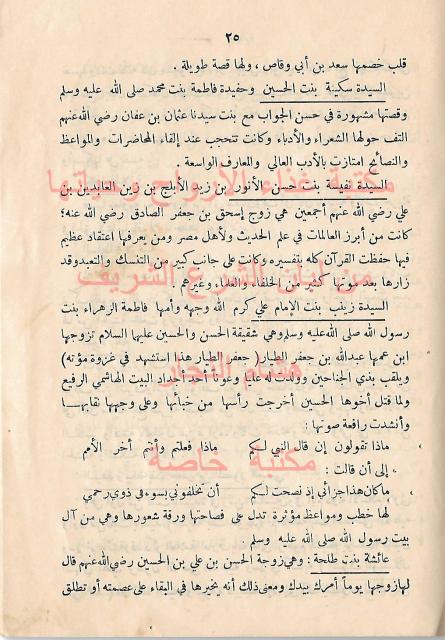 ٢٥
قلب خصمها سعد بن أبي وقاص ، ولها قصة طويلة .
السيدة سكينة بنت الحسين وحفيدة فاطمة بنت محمد صلى الله عليه وسلم
وقصتها مشهورة في حسن الجواب مع بنت سيدنا عثمان بن عفان رضي الله عنهم
التف حولها الشعراء والأدباء وكانت تتحجب عند إلقاء المحاضرات والمواعظ
والنصائح امتازت بالأدب العالي والمعارف الواسعة .
السيدة نفيسة بنت حسن الأنور بن زيد الأبلج بن زين العابدين بن
علي رضي الله عنهم أجمعين هي زوج إسحق بن جعفر الصادق رضي الله عنه؛
كانت من أبرز العالمات في علم الحديث ولأهل مصر ومن يعرفها اعتقاد عظيم
فيها حفظت القرآن كله بتفسيره وكانت على جانب كبير من التنسك والتعبد وقد
زارها بعد موتها كثير من الخلفاء والعلماء وغيرهم
السيدة زينب بنت الإمام علي كرم الله وجهه وأمها فاطمة الزهراء بنت
رسول الله صلى الله عليه وسلم وهي شقيقة الحسن والحسين عليها السلام تزوجها
ابن عمها عبدالله بن جعفر الطيار ( جعفر الطيار هذا استشهد في غزوة مؤته )
ويلقب بذي الجناحين وولدت له عليا وعوناً أحد أجداد البيت الهاشمي الرفيع
ولما قتل أخوها الحسين أخرجت رأسها من خبائها وعلى وجهها نقابها
وأنشدت رافعة صوتها :
ماذا تقولون إن قال النبي لكم ماذا فعلتم وأنتم أخر الأمم
إلى أن قالت :
ما كان هذا جزائي إذ نصحت لكم أن تخلفوني بسوء في ذوي رحمي
لها خطب ومواعظ مؤثرة تدل على فصاحتها ورقة شعورها وهي من آل
بيت رسول الله صلى الله عليه وسلم .
عائشة بنت طلحة : وهي زوجة الحسن بن علي بن الحسين رضي الله عنهم قال
لها زوجها يوماً أمرك بيدك ومعنى ذلك أنه يخيرها في البقاء على عصمته أو تطلق
مكتبة غذاء الأرواح ريحانها
من لبان الشرع الشريف
هشام النجار
مكتبة خاصة